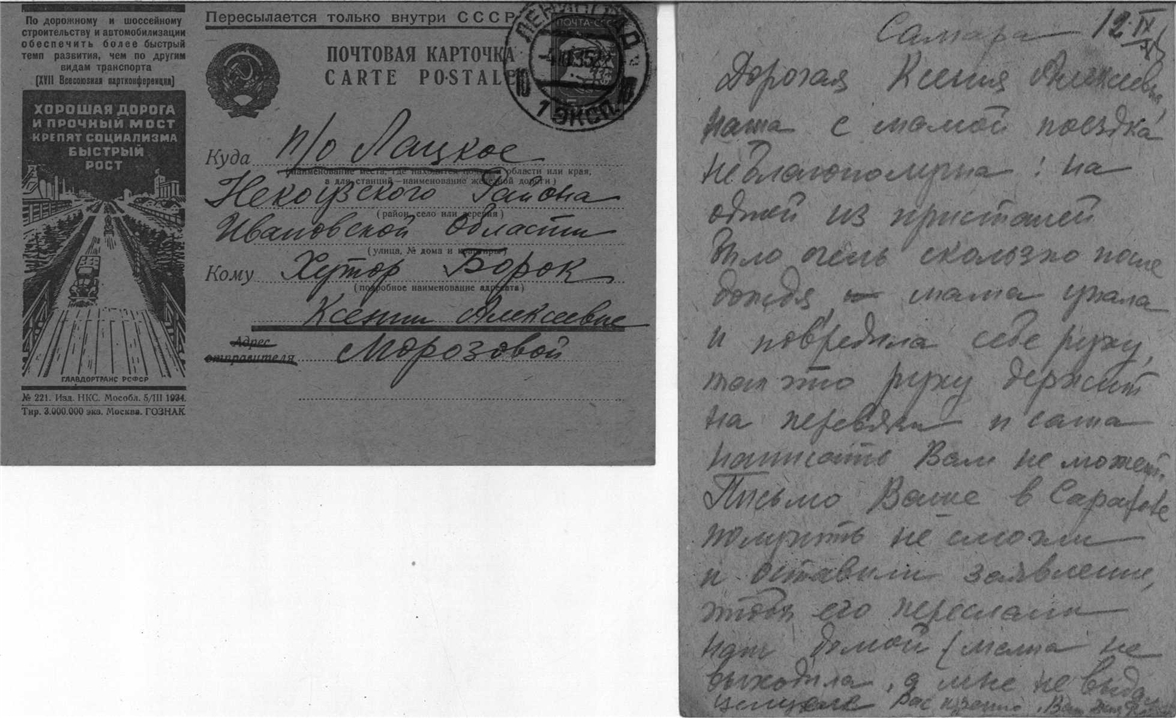 По дорожному и шоссейному
строительству и автомобилизации
обеспечить более быстрый
темп развития, чем по другим
видам транспорта
(XVII Всесоюзная партконференция)
ХОРОШАЯ ДОРОГА
И ПРОЧНЫЙ МОСТ
КРЕПЯТ СОЦИАЛИЗМА
БЫСТРЫЙ
РОСТ
ГЛАВДОРТРАНС РСФСР
№ 221. Изд. НКС. Мособл. 5/III 1934.
Тир. 3.000.000 экз. Москва. ГОЗНАК
Пересылается только внутри СССР
ПОЧТОВАЯ КАРТОЧКА
CARTE POSTALE
ПОЧТА СССР
ЛЕНИНГРАД
1 ЭКСП.
Куда п/о Лацкое
(наименование места, где находится почта, и области или края,
а для станций—наименование железной дороги)
Некоузского Района
(район, село или деревня)
Ивановской Области
(улица, № дома и квартиры)
Кому Хутор Борок
(подробное наименование адресата)
Ксении Алексеевне
Адрес
отправителя Морозовой
Самара 12 IX
Дорогая Ксения Алексеевна,
наша с мамой поездка
неблагополучна: на
одной из пристаней
было очень скользко после
дождя, мама упала
и повредила себе руку,
так что руку держит
на перевязи и сама
написать Вам не может.
Письмо Ваше в Саратове
получить не смогли
и оставили заявление,
чтобы его переслали
нам домой (мама не
выходила, а мне не выда
Целуем Вас